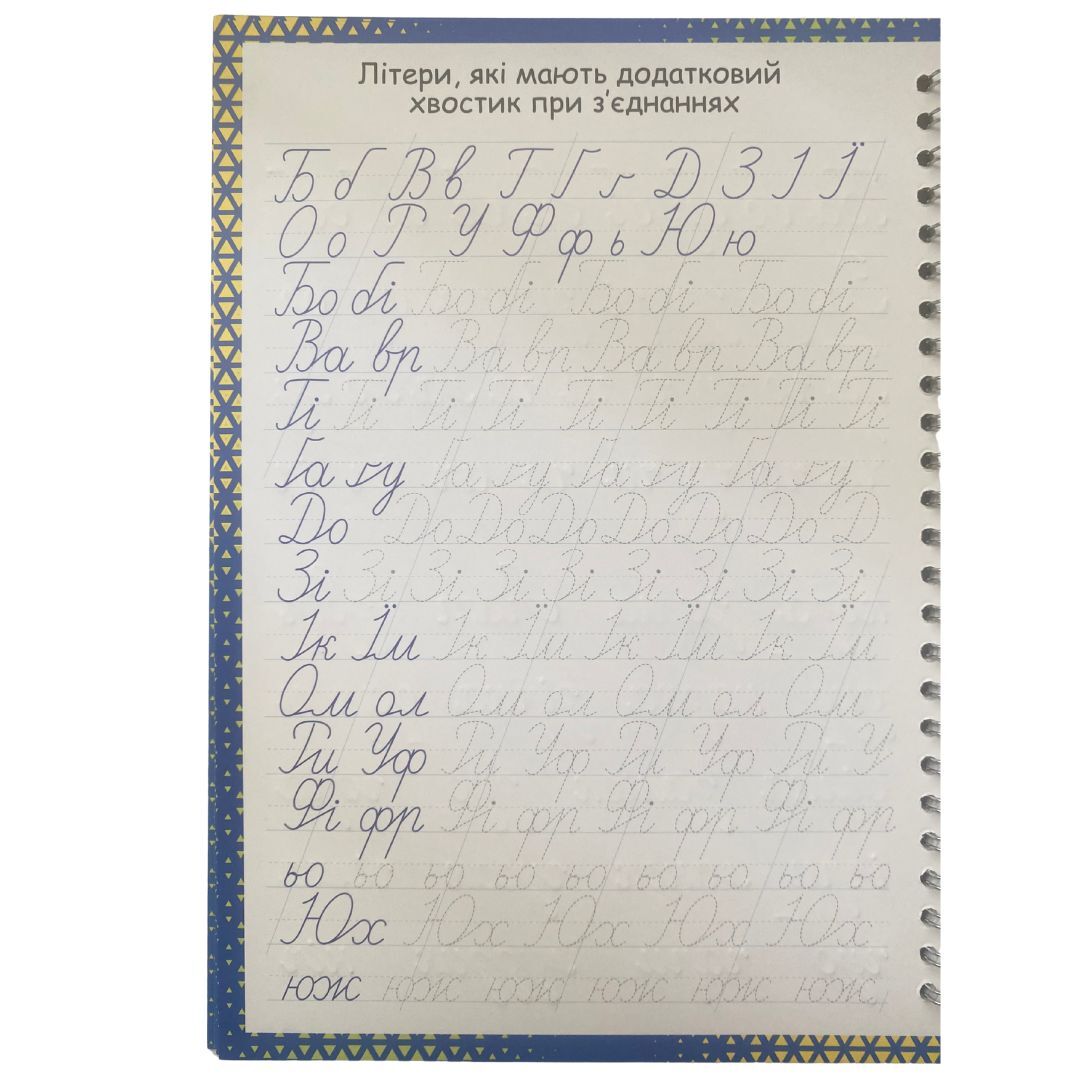 Літери, які мають додатковий
хвостик при з'єднаннях
Б б В в Г Ґ ґ Д З І Ї
О о Р У Ф ф ь Ю ю
Бо бі Бо бі Бо бі Бо бі
Ва вр Ва вр Ва вр Ва вр
Гі Гі Гі Гі Гі Гі Гі Гі Гі
Ґа ґу Ґа ґу Ґа ґу Ґа ґу
До До До До До До До Д
Зі Зі Зі Зі Зі Зі Зі Зі Зі
Ік Їм Ік Їм Ік Їм Ік Їм
Ом ол Ом ол Ом ол Ом
Ри Уф Ри Уф Ри Уф Ри У
Фі фр Фі фр Фі фр Фі фр
ьо ьо ьо ьо ьо ьо ьо ьо ьо
Юх Юх Юх Юх Юх
юж юж юж юж юж юж